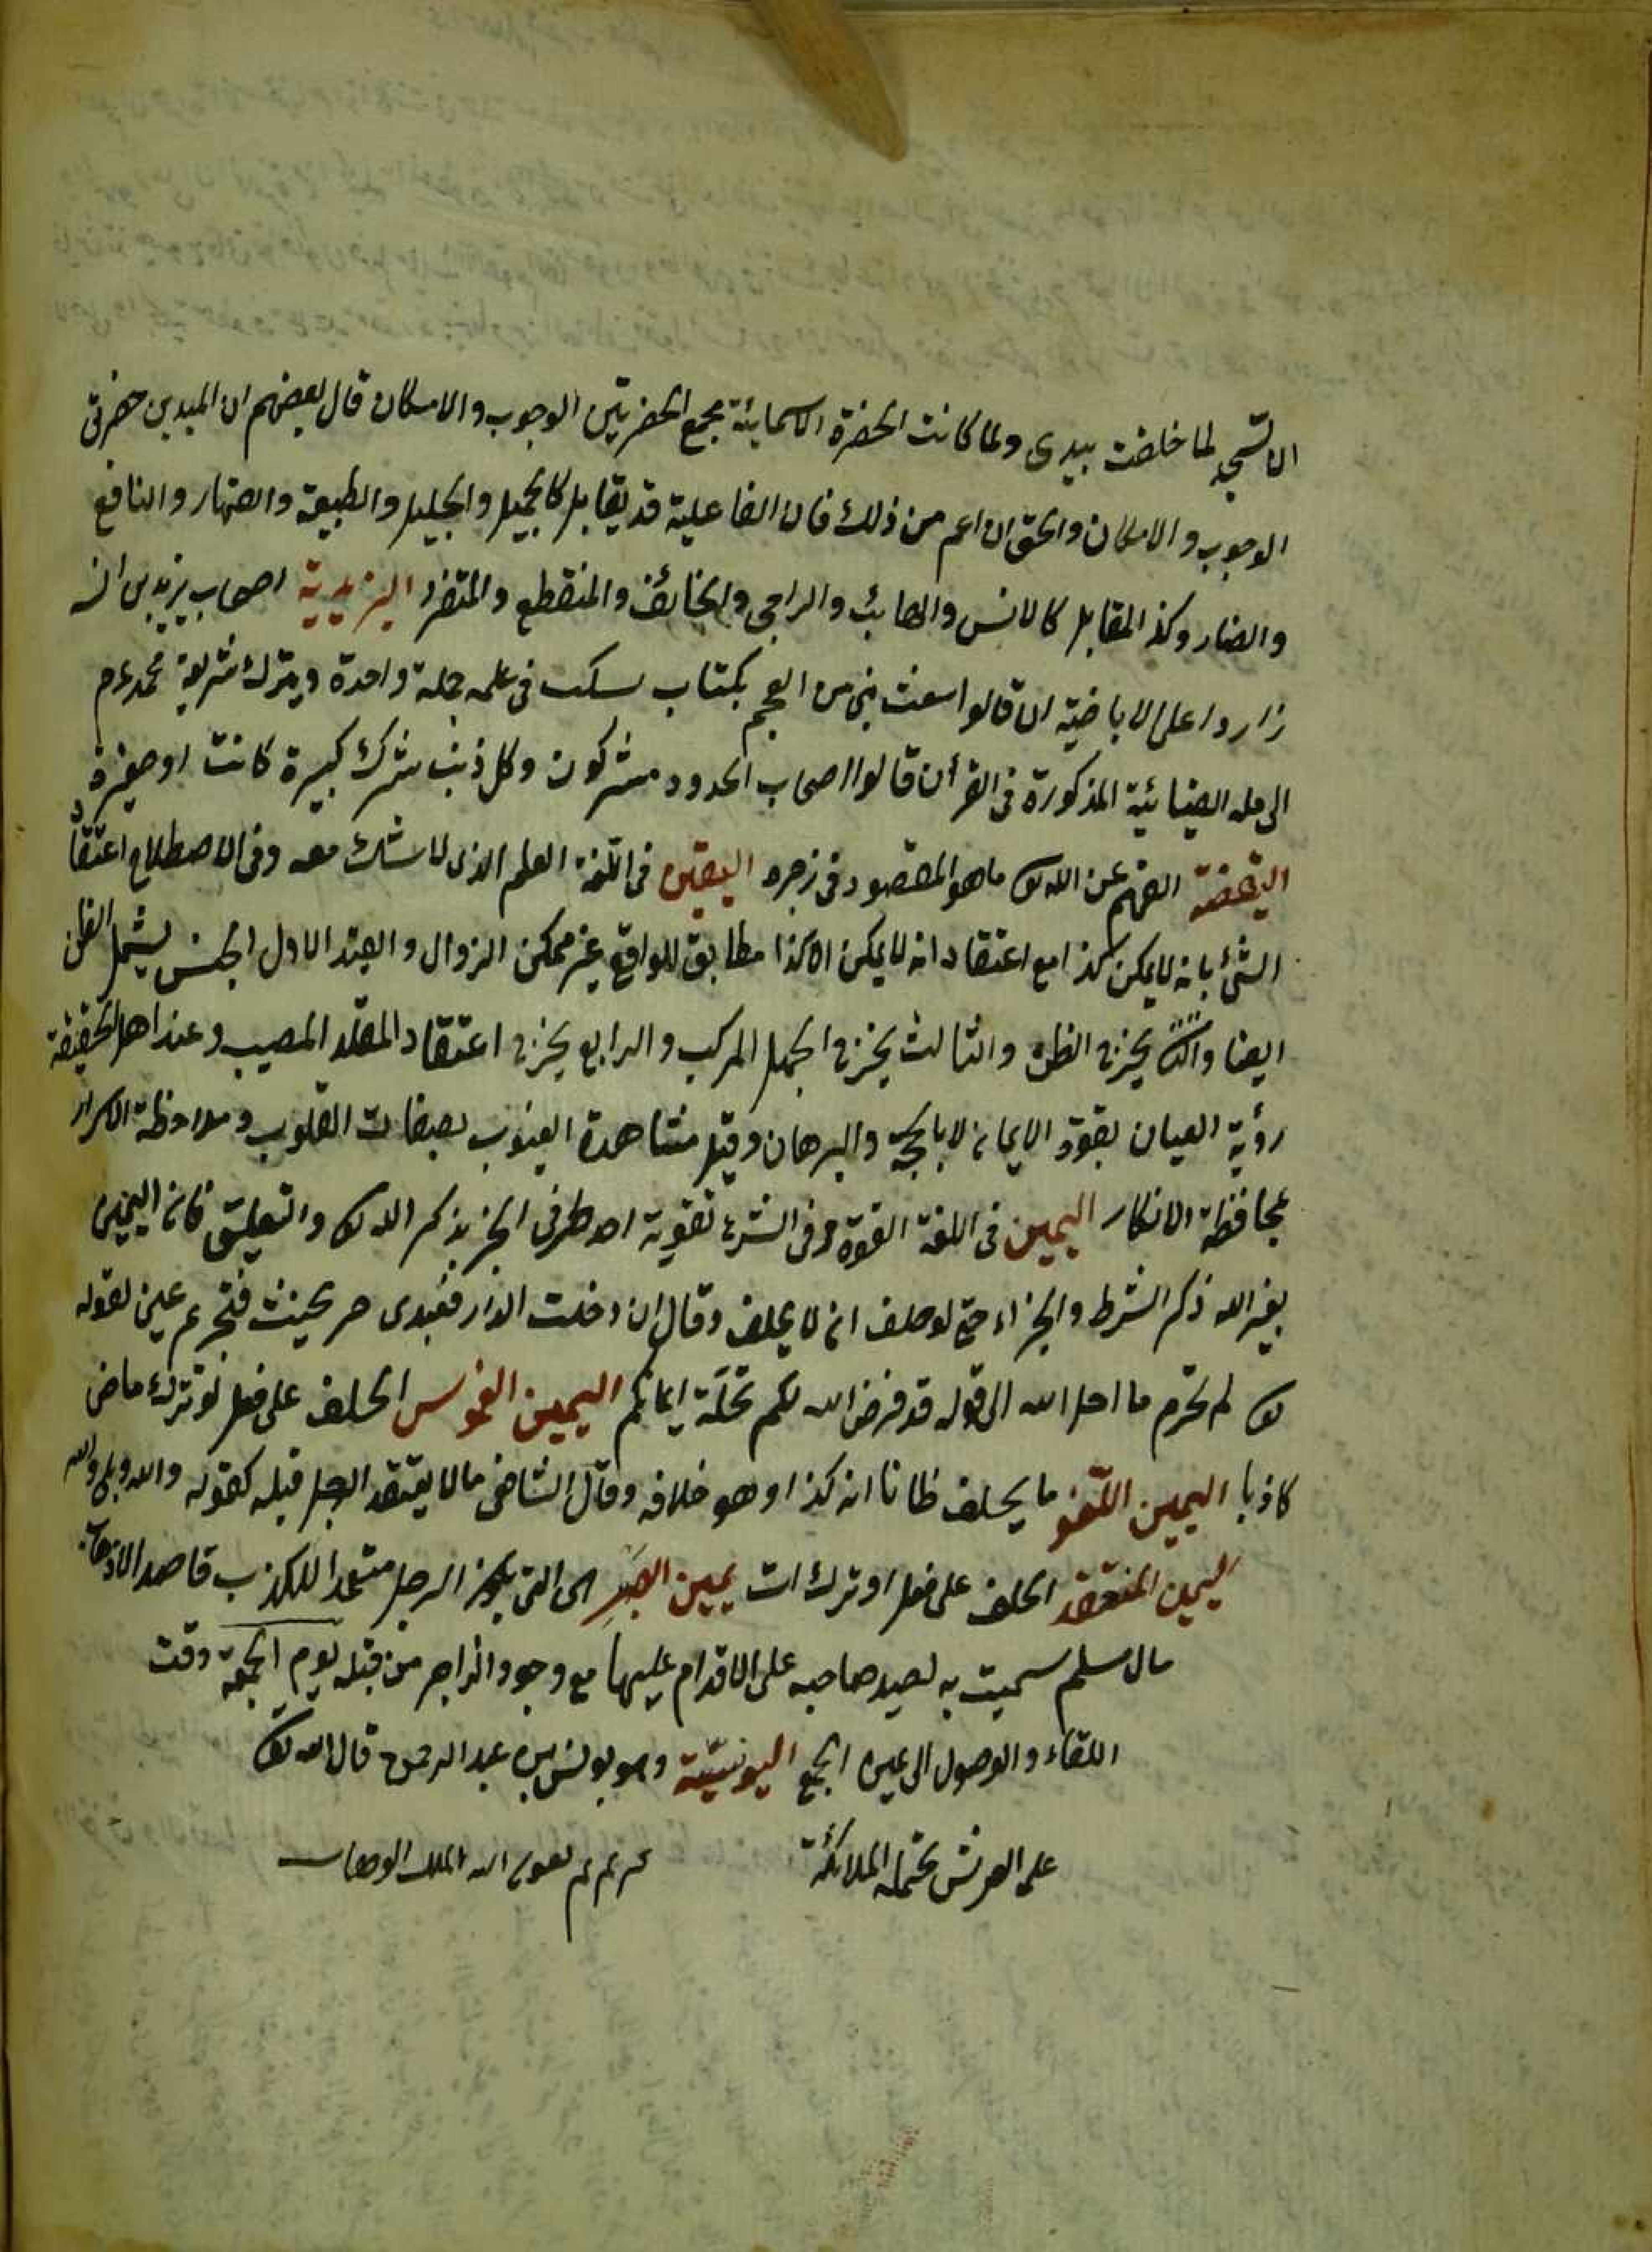 الا تسجد لما خلقت بيدى ولما كانت الحضرة الاسمائية مجمع الحضرتين الوجوب والامكان قال بعضهم ان اليدين حضرتى
الوجوب والامكان والحق ان اعم من ذلك فان الفاعلية قد يقابل كالجميل والجليل والطيعة والقهار والنافع
والضار وكذ المقابل كالانس والهائب والراجى والخائف والمنقطع والمتضرر اليزيدية اصحاب يزيد بن انسه
زادوا على الاباضية ان قالوا سعث نبى من العجم بكتاب سكتب فى علمه جملة واحدة ويترك شريعة محمد عم
الى مله الصبائية المذكورة فى القرأن قالوا اصحاب الحدود مشركون وكل ذنب شرك كبيرة كانت او صغيرة
اليقضة الفهم عن الله تع ما هو المقصود فى زجره اليقين فى اللغة العلم الذى لا شك معه وفى الاصطلاح اعتقاد
الشئ بانه لا يمكن كذا مع اعتقاد انه لا يمكن الا كذا مطابق للواقع غير ممكن الزوال والعبد الاول الجنس يشمل الظن
ايضا والثانى يخرج الظن والثالث يخرج الجهل المركب والرابع يخرج اعتقاد المقلد المصيب وعند اهل الحقيقة
رؤية العيان بقوة الايمان لا بالحجة والبرهان وقيل مشاهدة الغيوب بصفات القلوب وملاحظة الاسرار
بمحافظة الافكار اليمين فى اللغة القوة وفى الشرع تقوية احد طرفى الخبر بذكر الله تع والتعليق فان اليمين
بغير الله ذكر الشرط والجزاء حتى لو حلف ان لا يحلف وقال ان دخلت الدار فعبدى حر يحنث فتحريم عين لقوله
تع لم تحرم ما احل الله الى قوله قد فرض الله لكم تحلة ايمانكم اليمين الغموس الحلف على فعل او ترك ماض
كاذبا اليمين اللغو ما يحلف ظانا انه كذا وهو خلافه وقال الشافعى ما لا يعتقد الرجل قبله كقوله والله وبلى والله
اليمين المنعقد الحلف على فعل او ترك ات يمين الصبر هى التى يكون الرجل متعمدا للكذب قاصدا لاذهاب
مال مسلم سميت به لصبر صاحبه على الاقدام عليها مع وجود الزاجر من قبله يوم الجمعة وقت
اللقاء والوصول الى عين الجمع اليونسية وهو يونس بن عبد الرحمن قال الله تع
على العرش تحمله الملائكة تم تم تم بعون الله الملك الوهاب